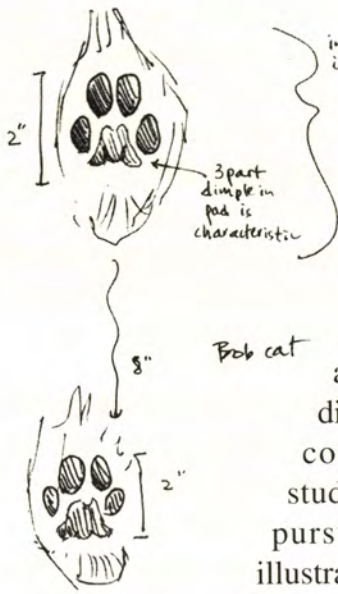 2"
3 part
dimple in
pad is
characteristic
8"
Bob cat
2"
a
di
co
stud
purs
illustra